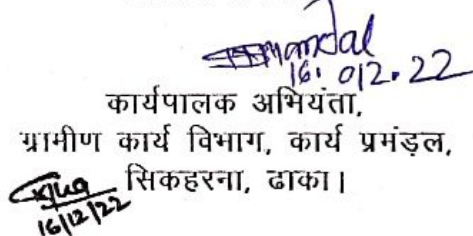 16.012.22
कार्यपालक अभियंता,
ग्रामीण कार्य विभाग, कार्य प्रमंडल,
सिकहरना, ढाका।
16/12/22